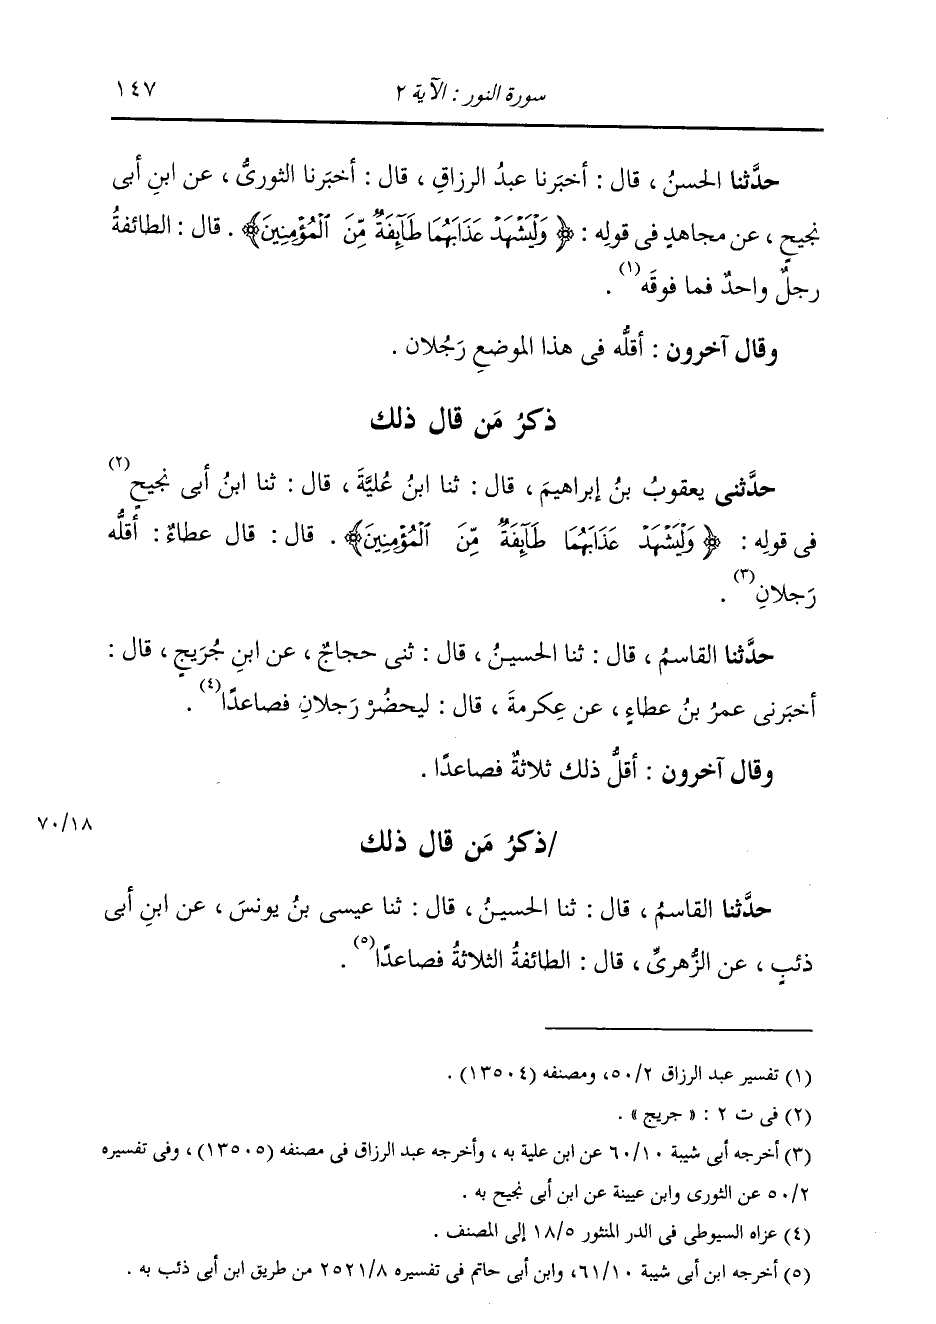 سورة النور : الآية ٢
١٤٧
حدَّثنا الحسنُ ، قال : أخبَرنا عبدُ الرزاقِ ، قال : أخبَرنا الثورىُّ ، عن ابنِ أبى
نجيحٍ ، عن مجاهدٍ فى قولِه : ﴿ وَلْيَشْهَدْ عَذَابَهُمَا طَآئِفَةٌ مِّنَ ٱلْمُؤْمِنِينَ﴾ . قال : الطائفةُ
رجلٌ واحدٌ فما فوقَه(١) .
وقال آخرون : أقلُّه فى هذا الموضعِ رَجُلان .
ذكرُ مَن قال ذلك
حدَّثنى يعقوبُ بنُ إبراهيمَ ، قال : ثنا ابنُ عُليَّةَ ، قال : ثنا ابنُ أبى نجيحٍ(٢)
فى قولِه : ﴿ وَلْيَشْهَدْ عَذَابَهُمَا طَآئِفَةٌ مِّنَ ٱلْمُؤْمِنِينَ﴾ . قال : قال عطاءٌ : أقلُّه
رَجلانِ(٣) .
حدَّثنا القاسمُ ، قال : ثنا الحسينُ ، قال : ثنى حجاجٌ ، عن ابنِ جُرَيجٍ ، قال :
أخبَرنى عمرُ بنُ عطاءٍ ، عن عِكرمةَ ، قال : ليحضُرْ رَجلانِ فصاعدًا(٤) .
وقال آخرون : أقلُّ ذلك ثلاثةٌ فصاعدًا .
٧٠/١٨
/ذكرُ مَن قال ذلك
حدَّثنا القاسمُ ، قال : ثنا الحسينُ ، قال : ثنا عيسى بنُ يونسَ ، عن ابنِ أبى
ذئبٍ ، عن الزُّهرىِّ ، قال : الطائفةُ الثلاثةُ فصاعدًا(٥) .
(١) تفسير عبد الرزاق ٥٠/٢، ومصنفه (١٣٥٠٤) .
(٢) فى ت ٢ : « جريج » .
(٣) أخرجه أبى شيبة ٦٠/١٠ عن ابن علية به ، وأخرجه عبد الرزاق فى مصنفه (١٣٥٠٥) ، وفى تفسيره
٥٠/٢ عن الثورى وابن عيينة عن ابن أبى نجيح به .
(٤) عزاه السيوطى فى الدر المنثور ١٨/٥ إلى المصنف .
(٥) أخرجه ابن أبى شيبة ٦١/١٠، وابن أبى حاتم فى تفسيره ٢٥٢١/٨ من طريق ابن أبى ذئب به .